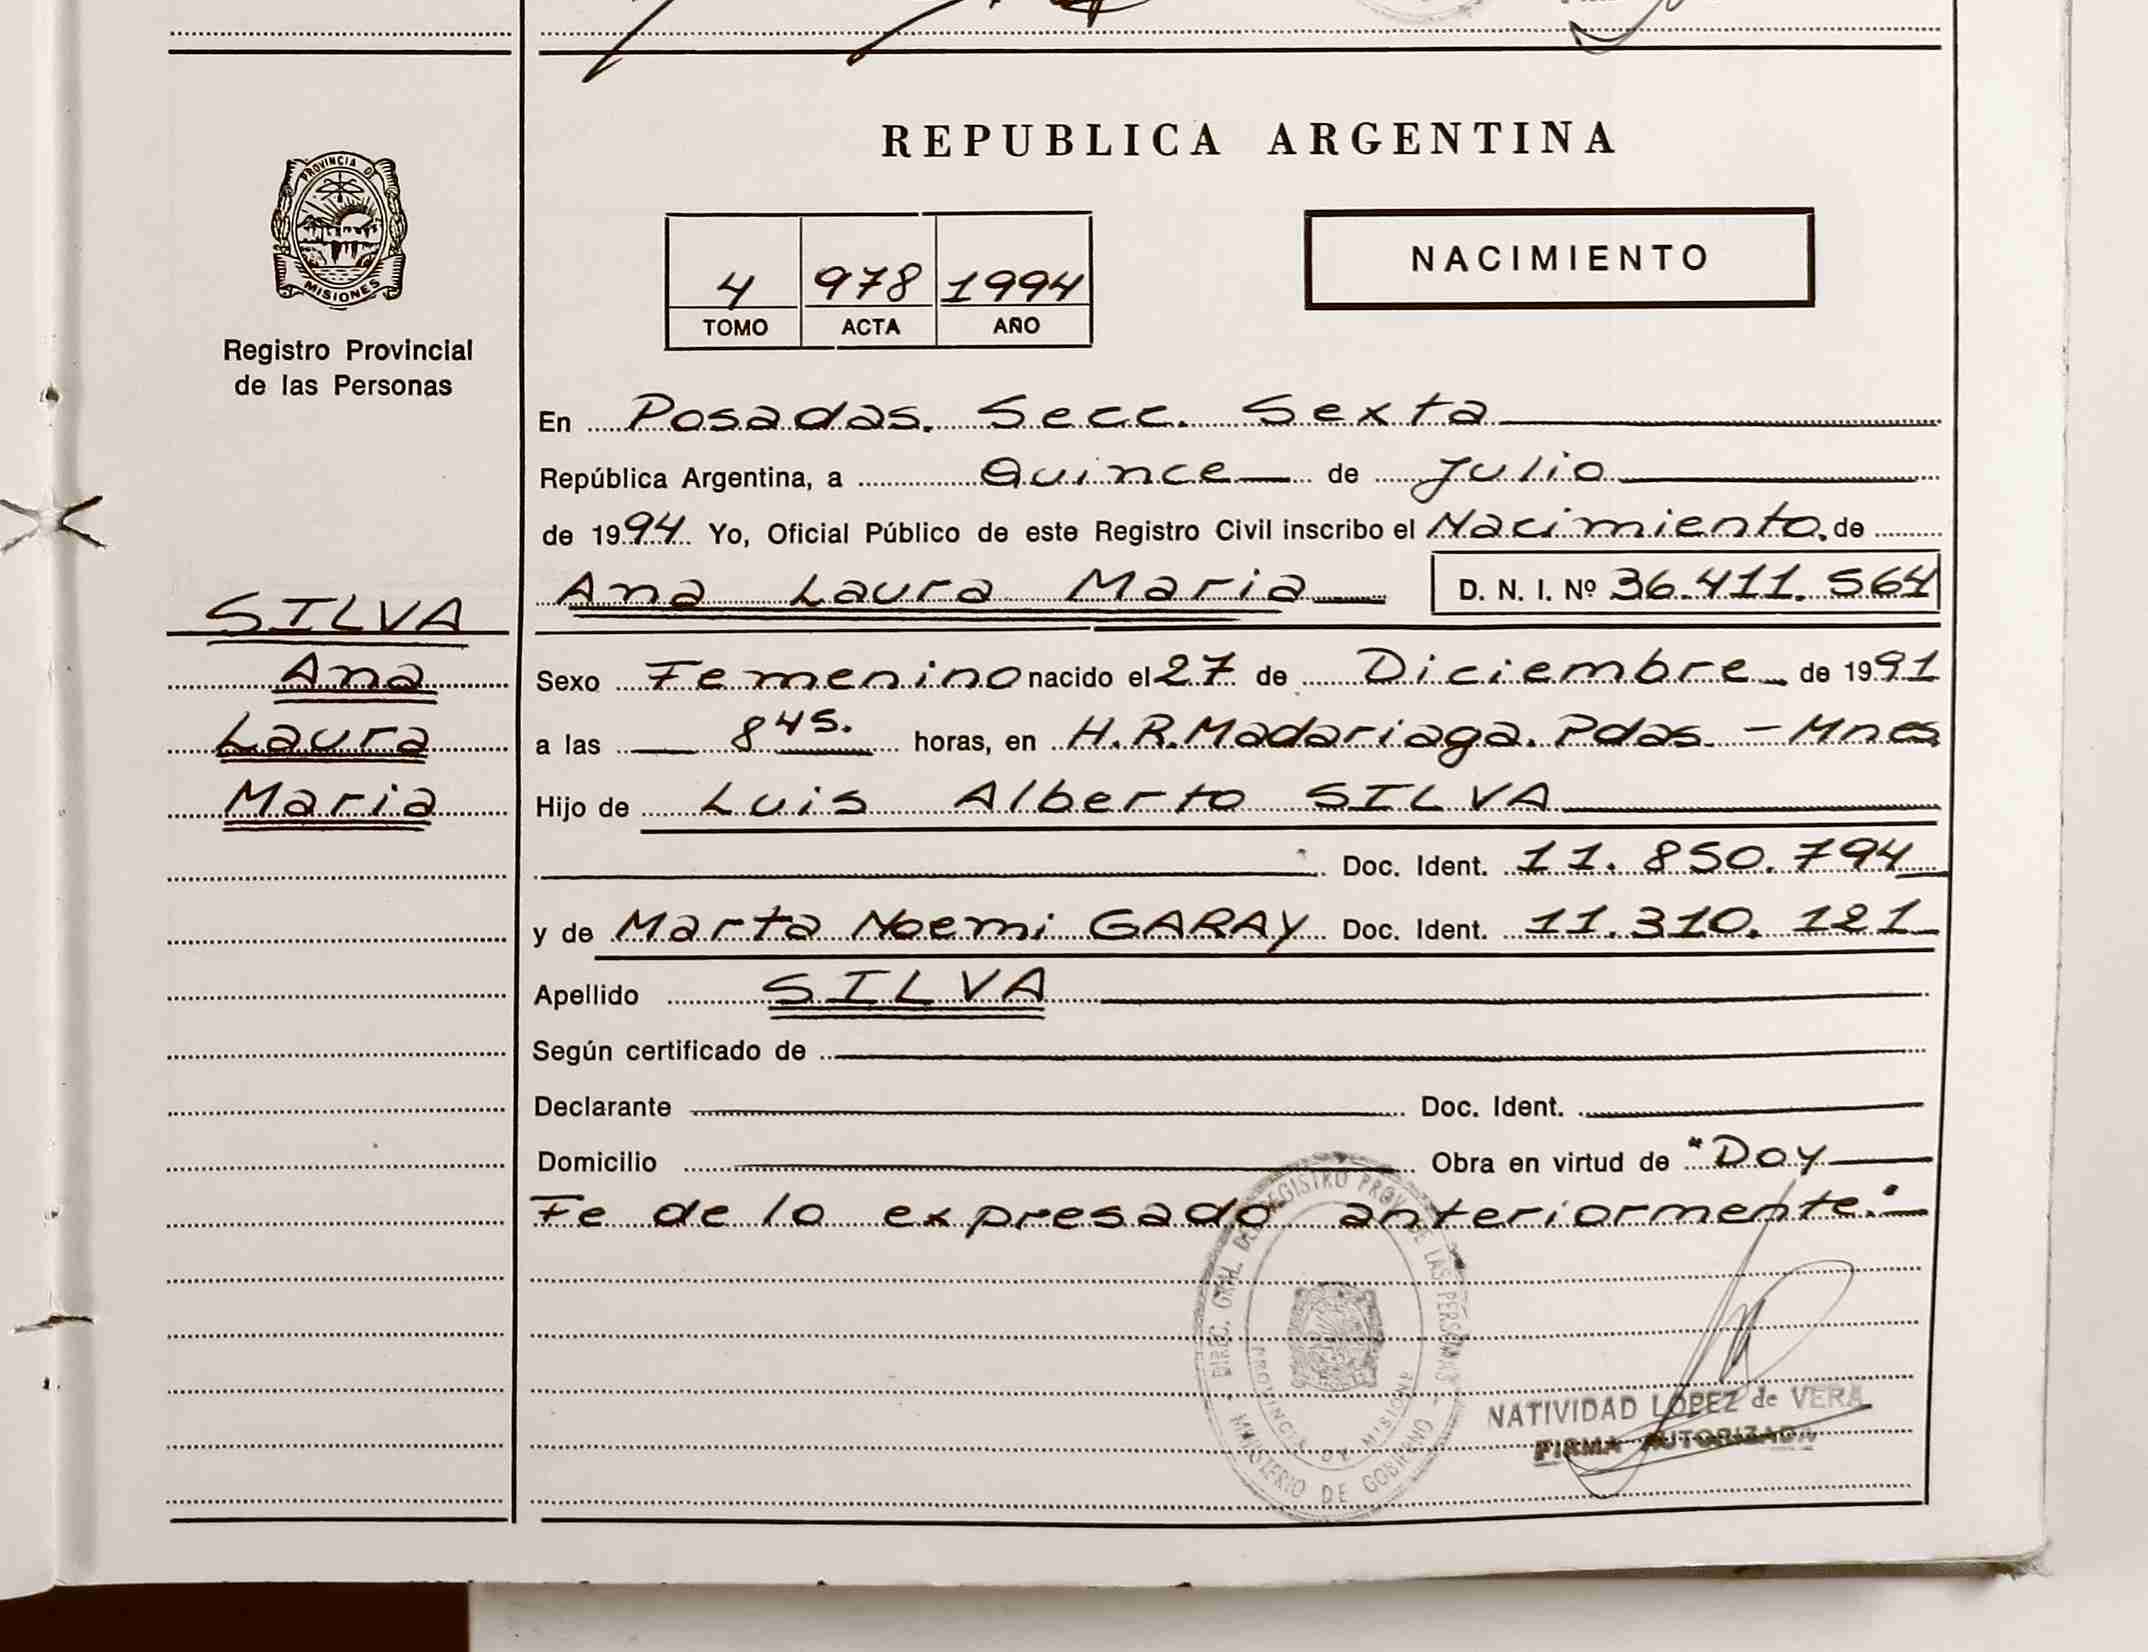 PROVINCIA DE
MISIONES
Registro Provincial
de las Personas
REPUBLICA ARGENTINA
NACIMIENTO
4 978 1994
TOMO ACTA AÑO
En Posadas. Secc. Sexta
República Argentina, a Quince de Julio
de 1994 Yo, Oficial Público de este Registro Civil inscribo el Nacimiento, de
Ana Laura Maria D. N. I. Nº 36.411.564
SILVA
Ana
Laura
Maria
Sexo Femenino nacido el 27 de Diciembre de 1991
a las 8 45. horas, en H.R.Madariaga. Pdas. - Mnes
Hijo de Luis Alberto SILVA
Doc. Ident. 11.850.794
y de Marta Noemi GARAY Doc. Ident. 11.310.121
Apellido SILVA
Según certificado de
Declarante Doc. Ident.
Domicilio Obra en virtud de "Doy
Fe de lo expresado anteriormente."
DIREC. GRAL. DE REGISTRO PROV. DE LAS PERSONAS
PROVINCIA DE MISIONES
MINISTERIO DE GOBIERNO
NATIVIDAD LOPEZ de VERA
FIRMA AUTORIZADA